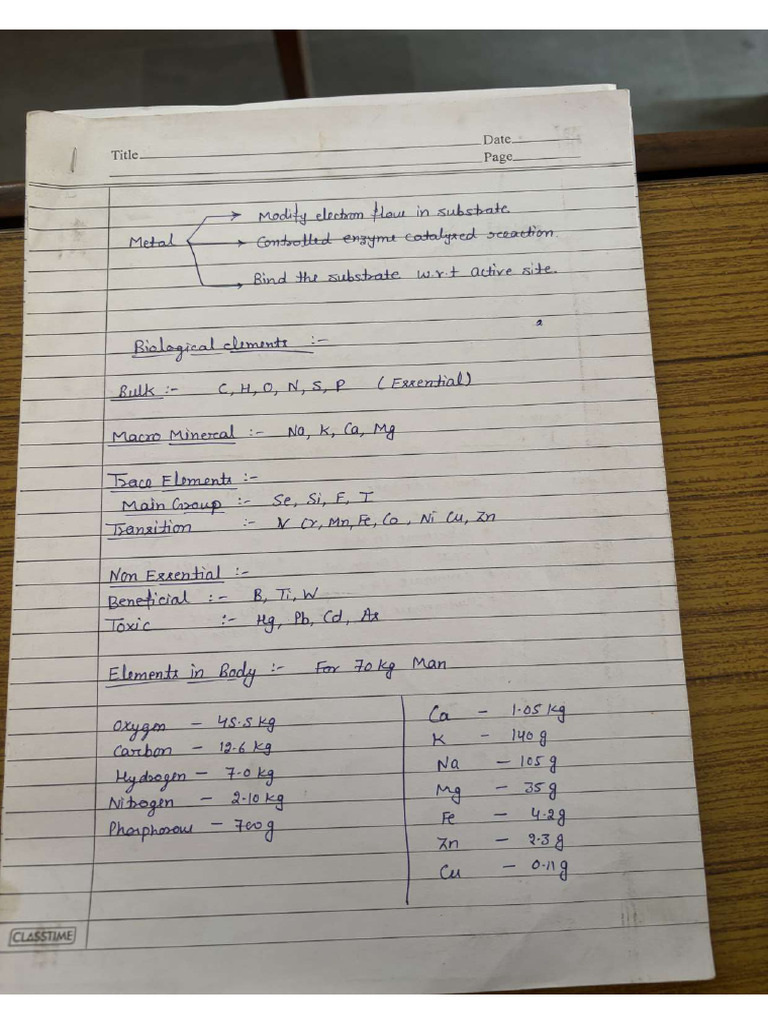 Title
Date
Page
Modify electron flow in substrate.
Metal → Controlled enzyme catalyzed reaction.
Bind the substrate w.r.t active site.
Biological elements :-
Bulk :- C, H, O, N, S, P (Essential)
Macro Mineral :- Na, K, Ca, Mg
Trace Elements :-
Main Group :- Se, Si, F, I
Transition :- V Cr, Mn, Fe, Co, Ni Cu, Zn
Non Essential :-
Beneficial :- B, Ti, W
Toxic :- Hg, Pb, Cd, As
Elements in Body :- For 70 kg Man
Oxygen - 45.5 kg
Carbon - 12.6 kg
Hydrogen - 7.0 kg
Nitrogen - 2.10 kg
Phosphorous - 700 g
Ca - 1.05 kg
K - 140 g
Na - 105 g
Mg - 35 g
Fe - 4.2 g
Zn - 2.3 g
Cu - 0.11 g
CLASSTIME